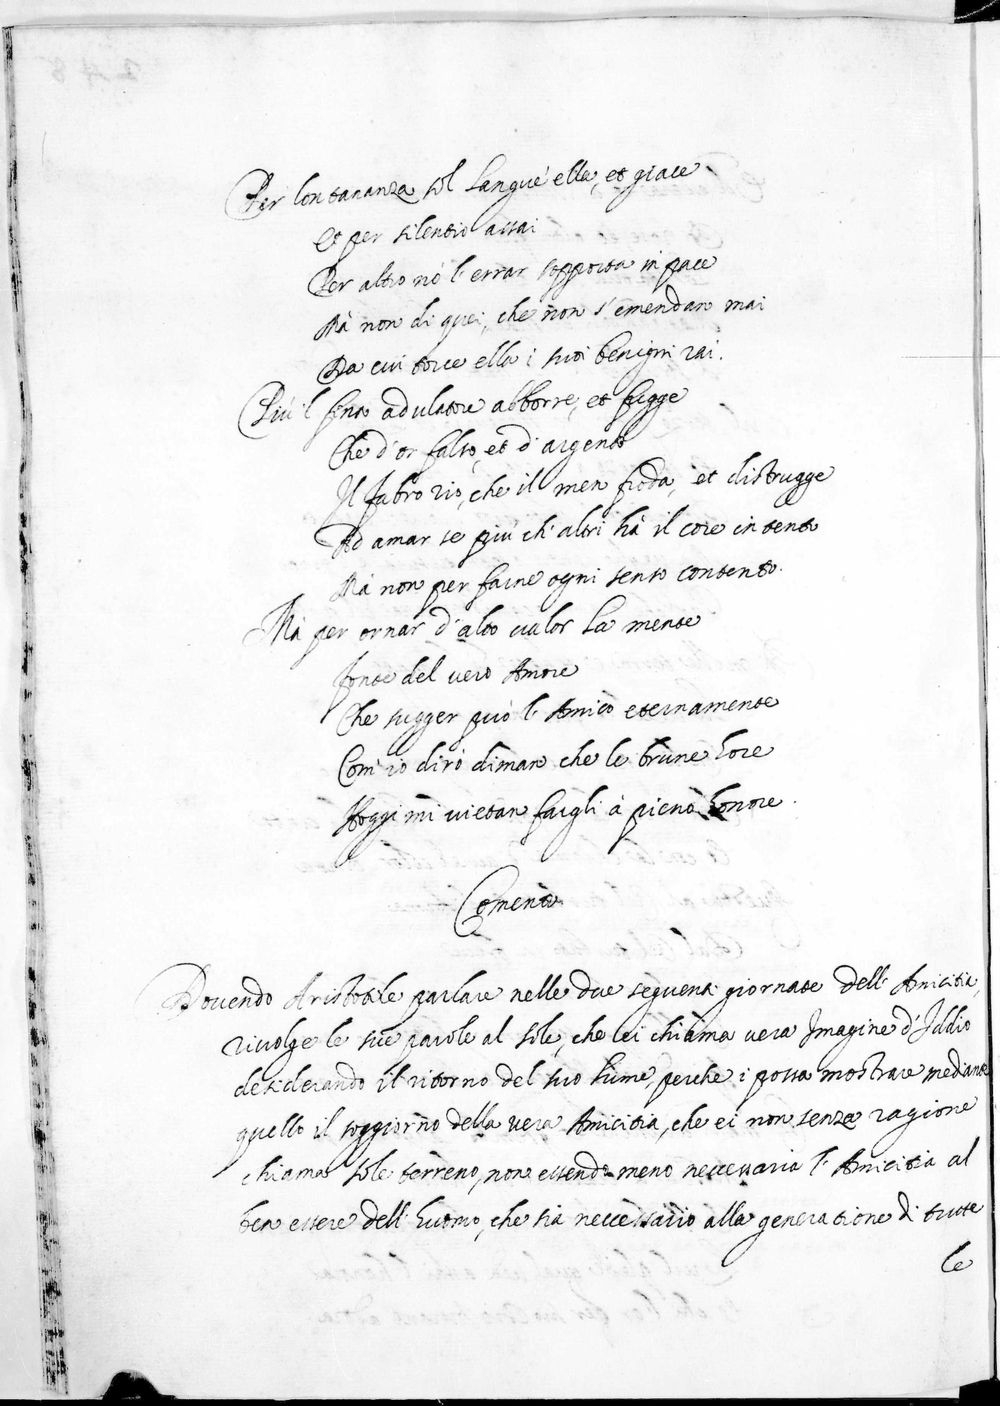 Per lontananza sol langue ella, et giace
Et per silentio assai
Per altro nò l'errar sopporta in pace
Mà non di quei, che non s'emendan mai
Da cui torce ella i suoi benigni rai.
Più il finto adulatore abborre, et fugge
Che d'or falso, et d'argento
Il fabro rio, che il men froda, et distrugge
Ad amar se più ch'altri hà il core intento
Mà non per farne ogni senso contento.
Mà per ornar d'alto valor la mente
fonte del vero Amore
Che sugger può l'Amico eternamente
Com'io dirò diman che le brune hore
Hoggi mi vietan fargli à pieno honore.
Comento
Dovendo Aristotile parlare nelle due seguenti giornate dell'Amicitia,
rivolge le sue parole al sole, che ei chiama vera Imagine d'Iddio
desiderando il ritorno del suo lume, perche i possa mostrare mediante
quello il soggiorno della vera Amicitia, che ei non senza ragione
chiama sole terreno, non essendo meno necessaria l'Amicitia al
ben essere dell'huomo, che sia necessario alla generatione di tutte
le